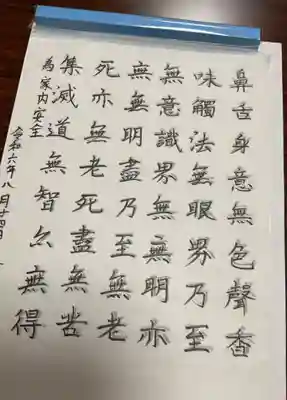 鼻舌身意無色聲香
味觸法無眼界乃至
無意識界無無明亦
無無明盡乃至無老
死亦無老死盡無苦
集滅道無智亦無得
為家内安全
令和六年八月十四日